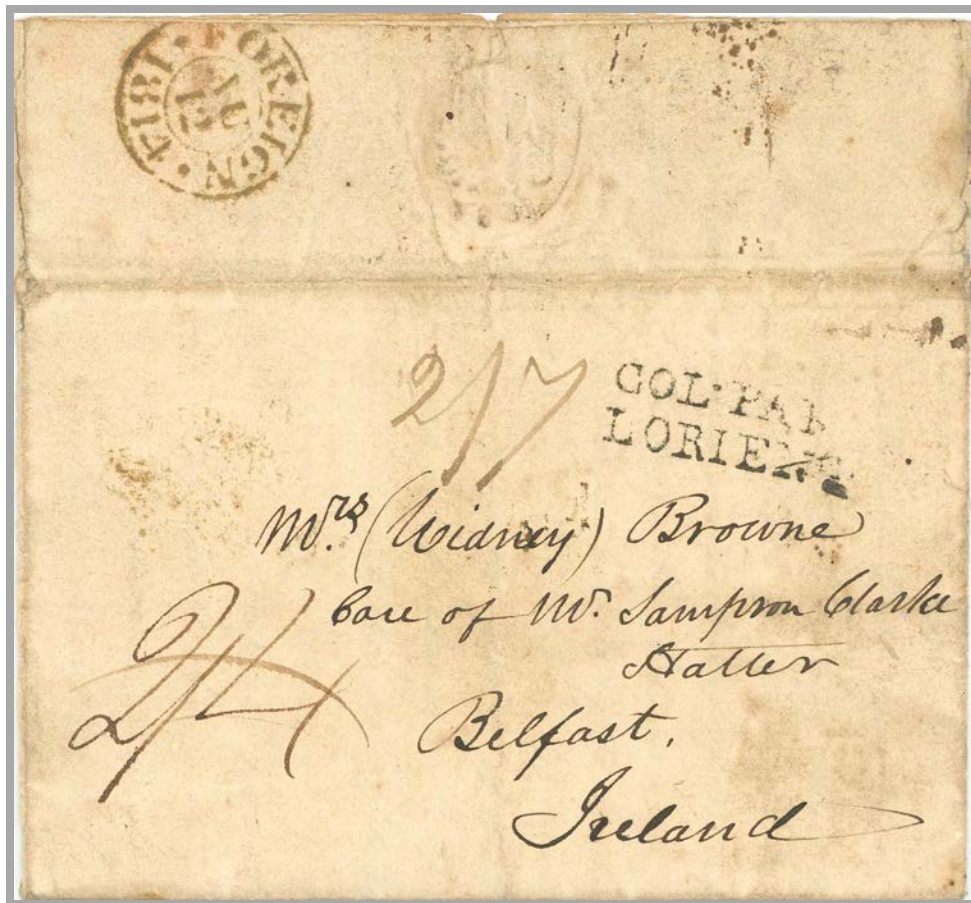 FOREIGN · 1814 ·
AU
2/7
COL·PAR
LORIENT
Mrs (Widney) Browne
Care of Mr. Sampson Clarke
Hatter
2/4
Belfast,
Ireland